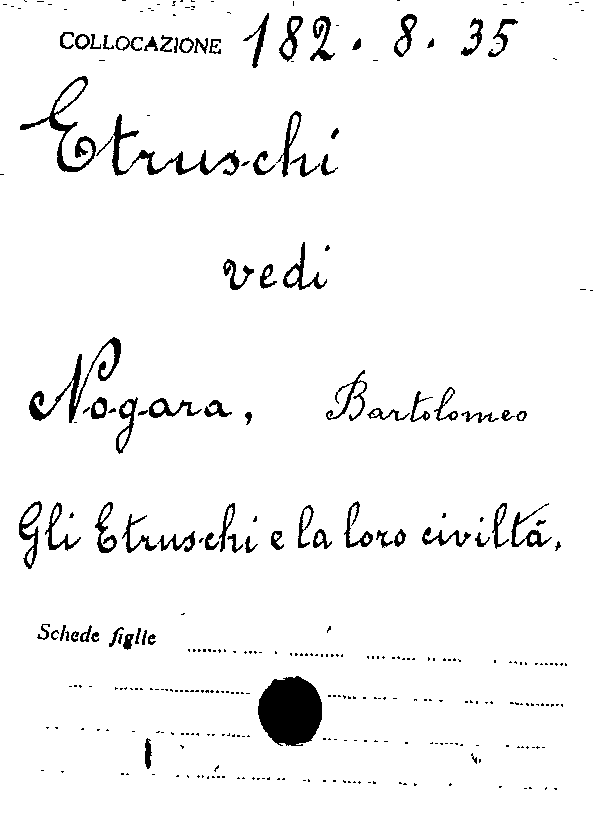 COLLOCAZIONE 182.8.35
Etruschi
vedi
Nogara, Bartolomeo
Gli Etruschi e la loro civiltà.
Schede figlie